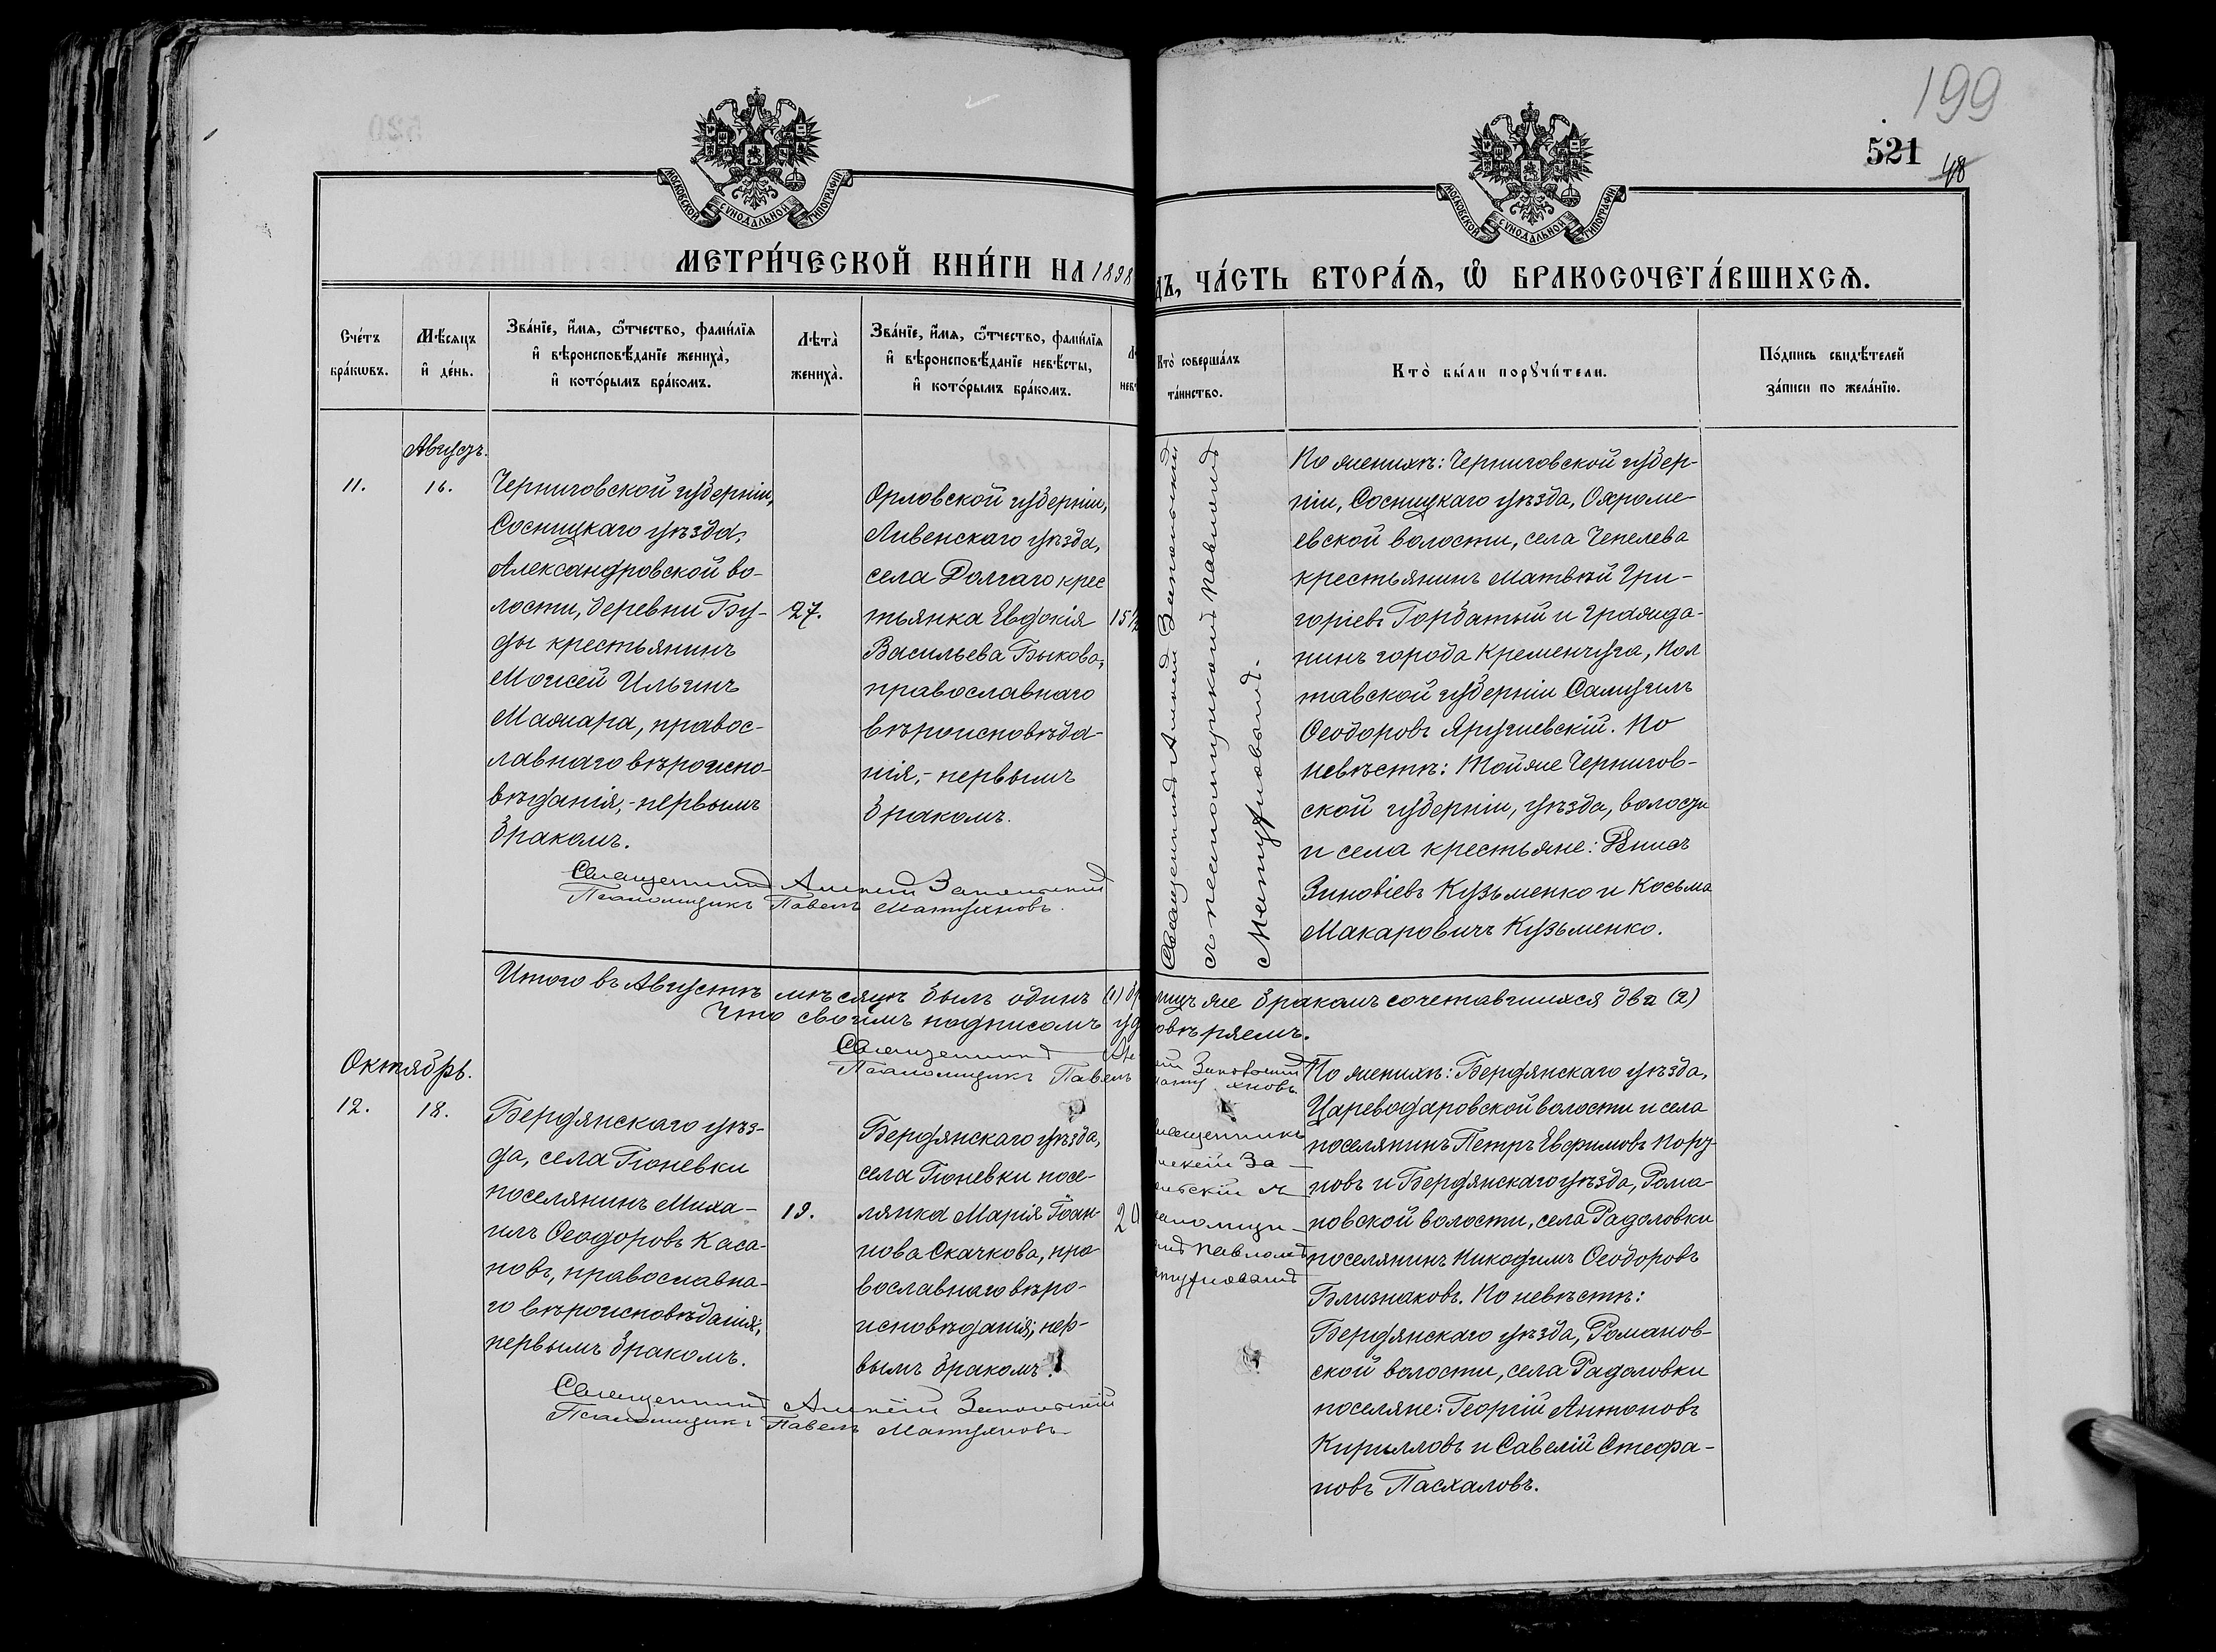 199
521
48
МОСКОВСКОЙ СѴНОДАЛЬНОЙ ТИПОГРАФІИ
МОСКОВСКОЙ СѴНОДАЛЬНОЙ ТИПОГРАФІИ
МЕТРИ́ЧЕСКОЙ КНИ́ГИ НА 1898
ДЪ, ЧА́СТЬ ВТОРА́Ѧ, Ѡ҆ БРАКОСОЧЕТА́ВШИХСѦ.
Сче́тъ
бра́кѡвъ.
Мѣ́сяцъ
и҆ де́нь.
Зва́нїе, и҆́мѧ, ѻ҆́тчество, фами́лїѧ
и҆ вѣроисповѣ́данїе жениха̀,
и҆ кото́рымъ бра́комъ.
Лѣта̀
жениха̀.
Зва́нїе, и҆́мѧ, ѻ҆́тчество, фами́лїѧ
и҆ вѣроисповѣ́данїе невѣ́сты,
и҆ кото́рымъ бра́комъ.
Кто̀ соверша́лъ
та́инство.
Кто̀ бы́ли порꙋчи́тели.
По́дпись свидѣ́телей
за́писи по жела́нїю.
Августъ.
11.
16.
Черниговской губерніи,
Сосницкаго уѣзда,
Александровской во-
лости, деревни Бу-
ды крестьянинъ
Моисей Ильинъ
Мажара, правос-
лавнаго вѣроиспо-
вѣданія,- первымъ
бракомъ.
27.
Орловской губерніи,
Ливенскаго уѣзда,
села Долгаго крес
тьянка Евдокія
Васильева Быкова,
православнаго
вѣроисповѣда-
нія,- первымъ
бракомъ.
15 1/2
Священникъ Алексій Запольскій
съ псаломщикомъ Павломъ
Матухновымъ.
По женихѣ: Черниговской губер-
ніи, Сосницкаго уѣзда, Охроме-
евской волости, села Чепелева
крестьянинъ Матвѣй Гри-
горіевъ Горбатый и гражда-
нинъ города Кременчуга, Пол
тавской губерніи Самуилъ
Ѳеодоровъ Яругиевскій. По
невѣстѣ: Той же Чернигов-
ской губерніи, уѣзда, волости
и села крестьяне: Зиновіевъ Кузьменко и Косьма
Макаровичъ Кузьменко.
Священникъ Алексій Запольскій
Псаломщикъ Павелъ Матухновъ.
Итого въ Августѣ мѣсяцѣ былъ одинъ (1) бр
лицъ же бракомъ сочетавшихся два (2)
Что своимъ подписомъ уд
овѣряемъ.
Священникъ Але
ій Запольскій
Псаломщикъ Павелъ
Мату хновъ
Октябрь.
12.
18.
Бердянскаго уѣз-
да, села Гюневки
поселянинъ Миха-
илъ Ѳеодоровъ Каса-
новъ, православна-
го вѣроисповѣданія;
первымъ бракомъ.
19.
Бердянскаго уѣзда,
села Гюневки посе-
лянка Марія Іоан-
нова Скачкова, пра
вославнаго вѣро-
исповѣданія; пер-
вымъ бракомъ.
20
вященникъ
лексій За-
ольскій съ
саломщи-
омъ Павломъ
атухновымъ
По женихѣ: Бердянскаго уѣзда,
Цареводаровской волости и села
поселянинъ Петръ Евфимовъ Пору-
новъ и Бердянскаго уѣзда, Рома-
новской волости, села Радоловки
поселянинъ Никодимъ Ѳеодоровъ
Близнаковъ. По невѣстѣ:
Бердянскаго уѣзда, Романов-
ской волости, села Радоловки
поселяне: Георгій Антоновъ
Кирилловъ и Савелій Стефа-
новъ Пасхаловъ.
Священникъ Алексій Запольскій
Псаломщикъ Павелъ Матухновъ